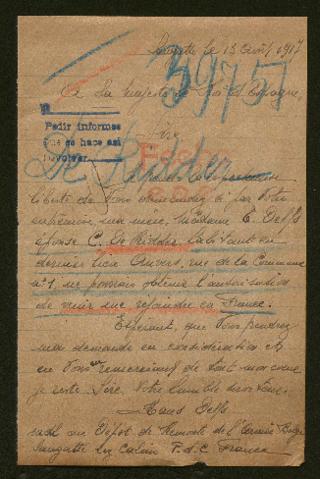 Sangatte le 13 1917
39757
A Sa Majesté le Roi d'Espagne,
Pedir informes
que se hace así
Sire
De Ridder
liberté de Vous demander si par Votre
ma mère, Madame E. Delfs
épouse C. De Ridder habitant en
dernier lieu Anvers, rue de la Commune
n° 1, ne pourrais obtenir l'autorisation
de venir me rejoindre en France.
Espérant, que Vous prendrez
ma demande en considération et
en Vous remerciant de tout mon coeur
je reste, Sire, Votre humble serviteur.
Hans Delfs
sold au Dépôt de Remonte de l'Armée Belge
Sangatte lez Calais P.d.C. France